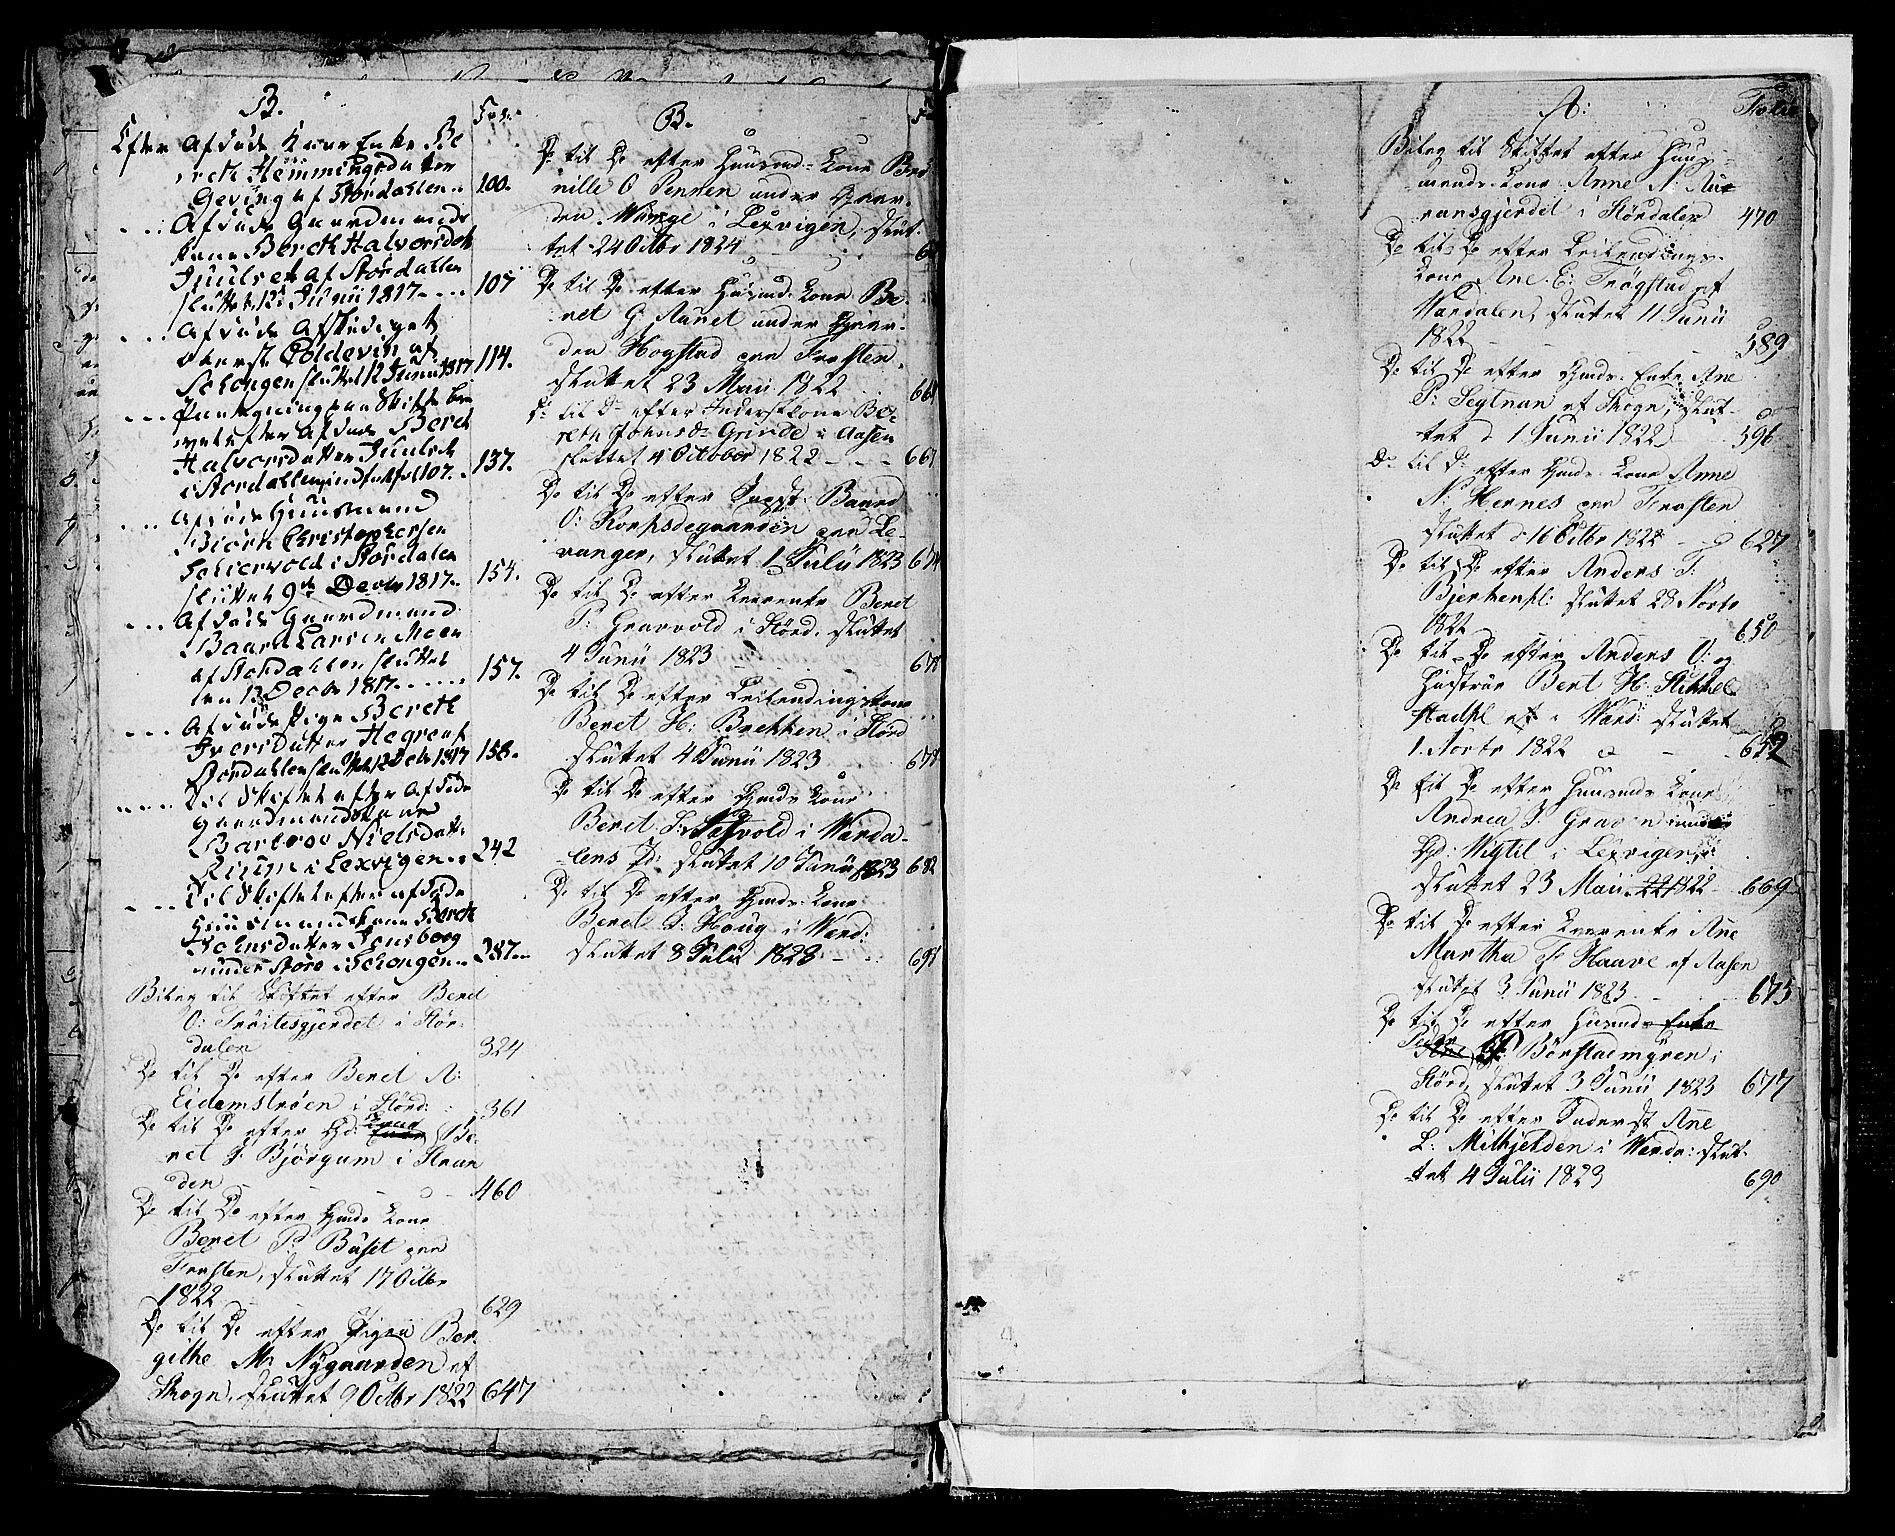 B.
Fol:
Efter Afdøde Kaar Enke Be
reth Hemmingsdatter
Geving af Størdahlen .. 100.
... Afdøde Gaardmands
Kone Bereth Halvorsdatt
Juulset af Stordahlen
sluttet 12 Junii 1817 .... 107
... Afdøde Afskediget
Coldevin af
Schongen sluttet 12 Junii 1817 114.
... Paategning paa Skifte bre
vet efter Afdøde Bereth
Halvorsdatter Juulset
i Stordahlen indført fol 107. 137.
... Afdøde Huusmand
Biørn Christophersen
i Størdalen
sluttet 9de Decbr 1817 .. 154.
... Afdøde Gaardmand
Baard Larsen Moen
af Stordahlen sluttet
den 12 Decbr 1817 ...... 157.
... Afdøde Pige Bereth
Iversdatter Hegre af
Stordahlen sluttet 12 Decbr 1817 158.
.... Til Skiftet efter Afdøde
Gaardmandskone
Barbroe Nielsdatt
i Lexvigen .. 242
... Til Skiftet efter afdøde
Huusmandskone Bereth
Johnsdatter Jensborg
under Støre i Schongen .. 287 ...
Bilag til Skiftet efter Beret
O: Trøitesgjerdet i Stør-
dalen 324
Do til Do efter Beret A:
Eidemstrøen i Størd: 361
Do til Do efter Hd: Kone Be-
ret J. Bjørgum i Stran
den - - - 460
Do til Do efter Hmds Kone
Beret P: Buset paa
Frosten, sluttet 17 Octbr
1822 629
Do til Do efter Pigen Ber-
githe M. Nygaarden af
Skogn, sluttet 9 Octbr 1822 647
B.
Do til Do efter Huusmd: Kone Ber
nille O Pennen under Gaar-
den Wange i Lexvigen, slut-
tet 24 Octbr 1824
Do til Do efter Husmd: Kone Be-
ret G: Aunet under Gaar-
den Hogstad paa Frosten,
sluttet 23 Maii 1822 . 66
Do til Do efter Inderstkone Be-
reth Johnsdr Grinde i Aasen
sluttet 4 October 1822 - - - 66
Do til Do efter Baard
O: Korpsdegaarden paa Le-
vanger, sluttet 1 Julii 1823 67
Do til Do efter Beret
P: Gravvold i Størd. sluttet
4 Junii 1823 67
Do til Do efter Leilendingskone
Beret H: Bækken i Størd
sluttet 4 Junii 1823 . 67
Do til Do efter Hmds Kone
Beret i Værda-
lens Pd: sluttet 10 Junii 1823 682
Do til Do efter Hmds: Kone
Beret J: Houg i Værd:
sluttet 8 Julii 1823 - - 69
A:
Folio
Bilag til Skiftet efter Huus-
mands-Kone Anne N Au-
ransgjerdet i Størdalen 470
Do til Do efter Leilendings-
Kone Ane E: Trøgstad af
Værdalen, sluttet 11 Junii
1822 - - 589
Do til Do efter Hmds: Enke Ane
P: Segtnan af Skogn, slut-
tet d 1 Junii 1822 - 596
Do til Do efter Hmds: Kone Anne
N: Hernes paa Frosten
sluttet d 16 Octbr 1822 - 627
Do til Do efter Anders T:
Bjerkenpl: sluttet 28 Novbr
1822 650
Do til Do efter Anders O: og
Hustrue Beret H: Stikkel
stadpl i Værd: sluttet
1 Novbr 1822 - - 652
Do til Do efter Huusmds Kone
Andrea J. Graven under
Gd: Wigtil i Lexvigen,
sluttet 23 Maii 1822 - 669
Do til Do efter Ane
Martha F Haave af Aasen
sluttet 3 Junii 1823 675
Do til Do efter Husmds Enke
Peder P: i
Størd, sluttet 3 Junii 1823 677
Do til Do efter Inderst Ane
L: Milhjelden i Værda: slut-
tet 4 Julii 1823 690